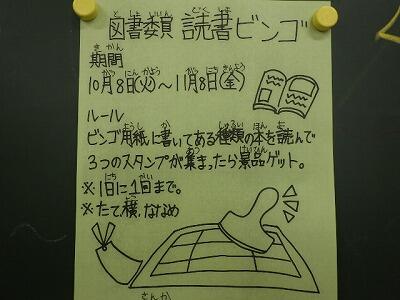 図書委員 読書ビンゴ
期間
10月8日(火)～11月8日(金)
ルール
ビンゴ用紙に書いてある種類の本を読んで
3つのスタンプが集まったら景品ゲット。
※1日に1回まで。
※たて、横、ななめ
さんか